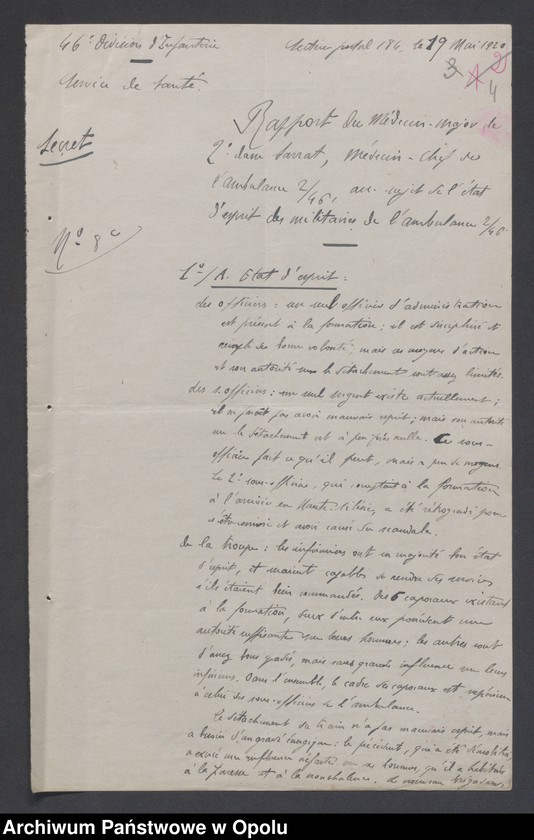 46e Division d'Infanterie
Secteur postal 184, le 19 Mai 1920
Service de Santé.
3 2
4
Secret
Rapport du Médecin-Major de
2e classe Sarrat, Médecin-Chef de
l'ambulance 2/46, au sujet de l'état
d'esprit des militaires de l'ambulance 2/46
No 8c
1o/ A. Etat d'esprit :
des officiers : un seul officier d'administration
est présent à la formation ; il est discipliné et
de bonne volonté, mais ses moyens d'action
et son autorité sur le détachement sont assez limités.
des s. officiers : un seul sergent existe actuellement ;
il ne paraît pas avoir mauvais esprit ; mais son autorité
sur le détachement est à peu près nulle. Ce sous-
officier fait ce qu'il peut, mais a peu de moyens.
Le 2e sous-officier, qui comptait à la formation
à l'arrivée en Haute-Silésie, a été rétrogradé pour
s'être enivré et avoir causé du scandale.
de la troupe : les infirmiers ont en majorité bon état
d'esprit, et seraient capables de rendre des services
s'ils étaient bien commandés. Des 6 caporaux existant
à la formation, deux d'entre eux possèdent une
autorité suffisante sur leurs hommes ; les autres sont
d'assez bons gradés, mais sans grande influence sur leurs
inférieurs. Dans l'ensemble, le cadre des caporaux est supérieur
à celui des sous-officiers de l'ambulance.
Le détachement du train n'a pas mauvais esprit, mais
a besoin d'un gradé énergique : le précédent, qui a été démobilisé,
a exercé une influence néfaste sur ses hommes, qu'il a habitués
à la paresse et à la nonchalance. Le nouveau brigadier,
Archiwum Państwowe w Opolu